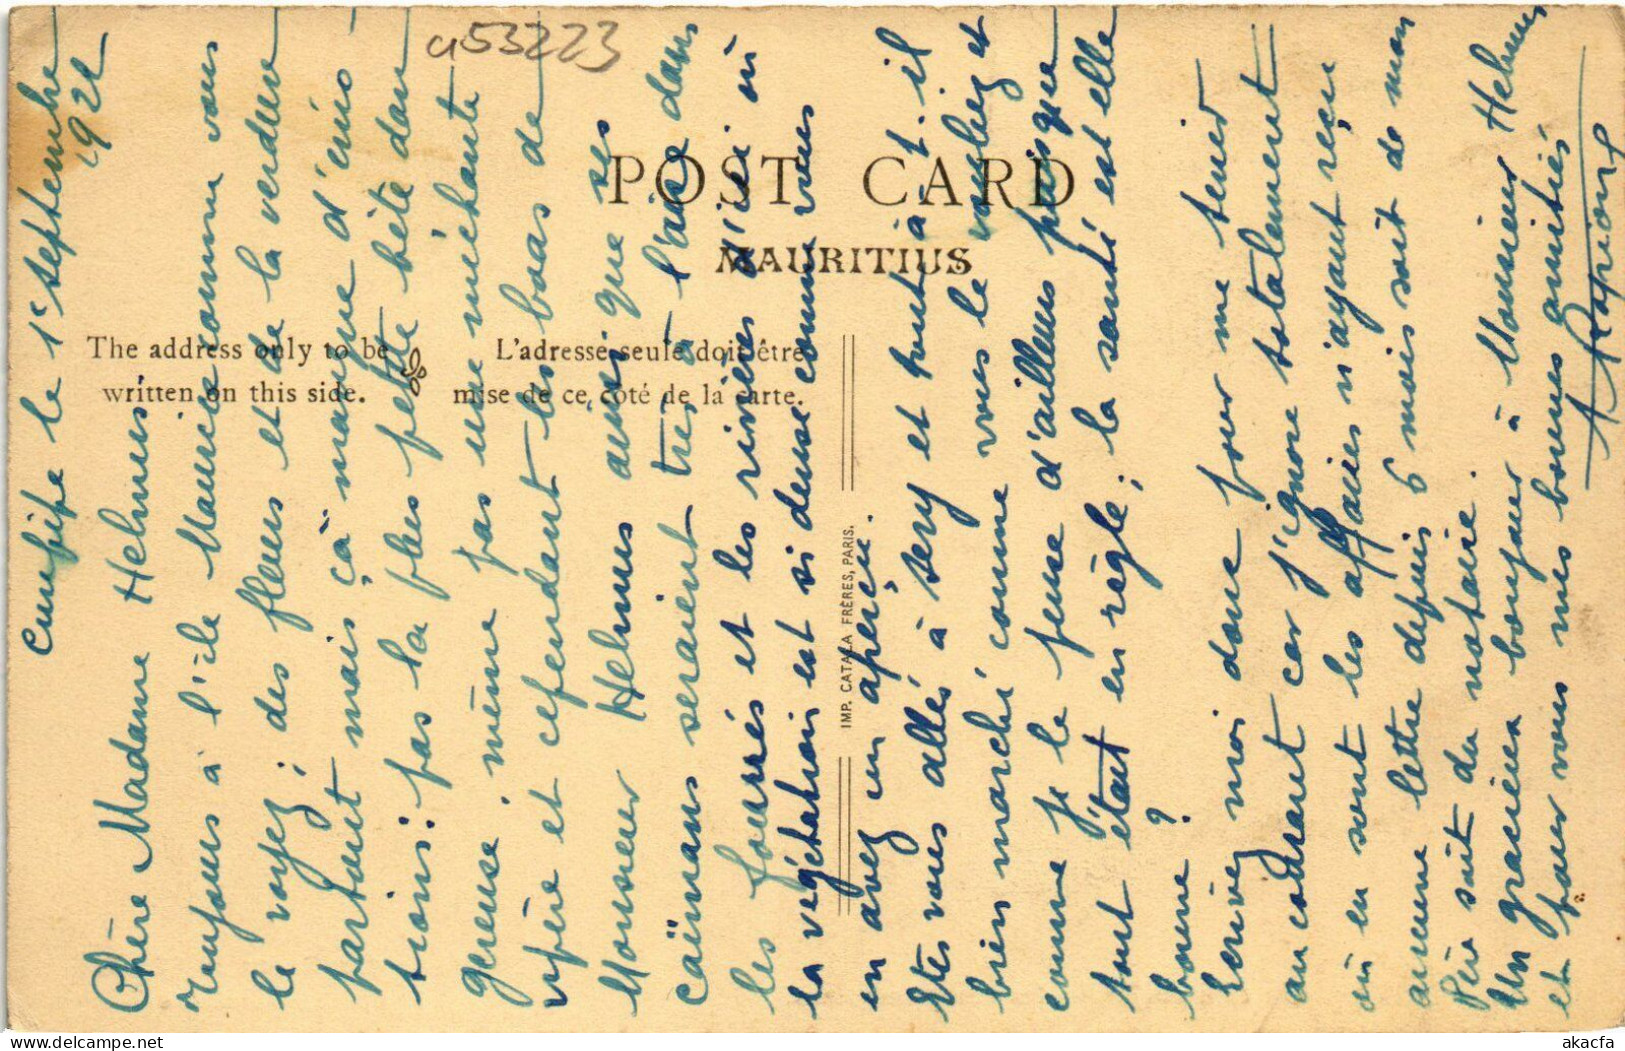 a53223
POST CARD
MAURITIUS
The address only to be
written on this side.
L'adresse seule doit être
mise de ce côté de la carte.
IMP. CATALA FRÈRES, PARIS.
Curepipe le 1er Septembre
1921
Chère Madame Helmus
Toujours à l'île Maurice comme vous
le voyez; des fleurs et de la verdure
partout mais çà manque d'émo-
tions: pas la plus petite bête dan
gereuse, même pas une méchante
vipère et cependant les bras de
Monsieur Helmus ainsi que ses
caïmans seraient très à l'aise dans
les fourrés et les rivières d'ici où
la végétation est si dense comme vous
en avez un aperçu.
Etes vous allés à Sery et tout a-t-il
bien marché comme vous le vouliez et
comme je le pense d'ailleurs puisque
tout était en règle; la santé est elle
bonne?
Ecrivez moi donc pour me tenir
au courant car j'ignore totalement
où en sont les affaires n'ayant reçu
aucune lettre depuis 6 mois soit de mon
Père soit du notaire.
Un gracieux bonjour à Monsieur Helmus
et pour vous mes bonnes amitiés
akacfa
delcampe.net